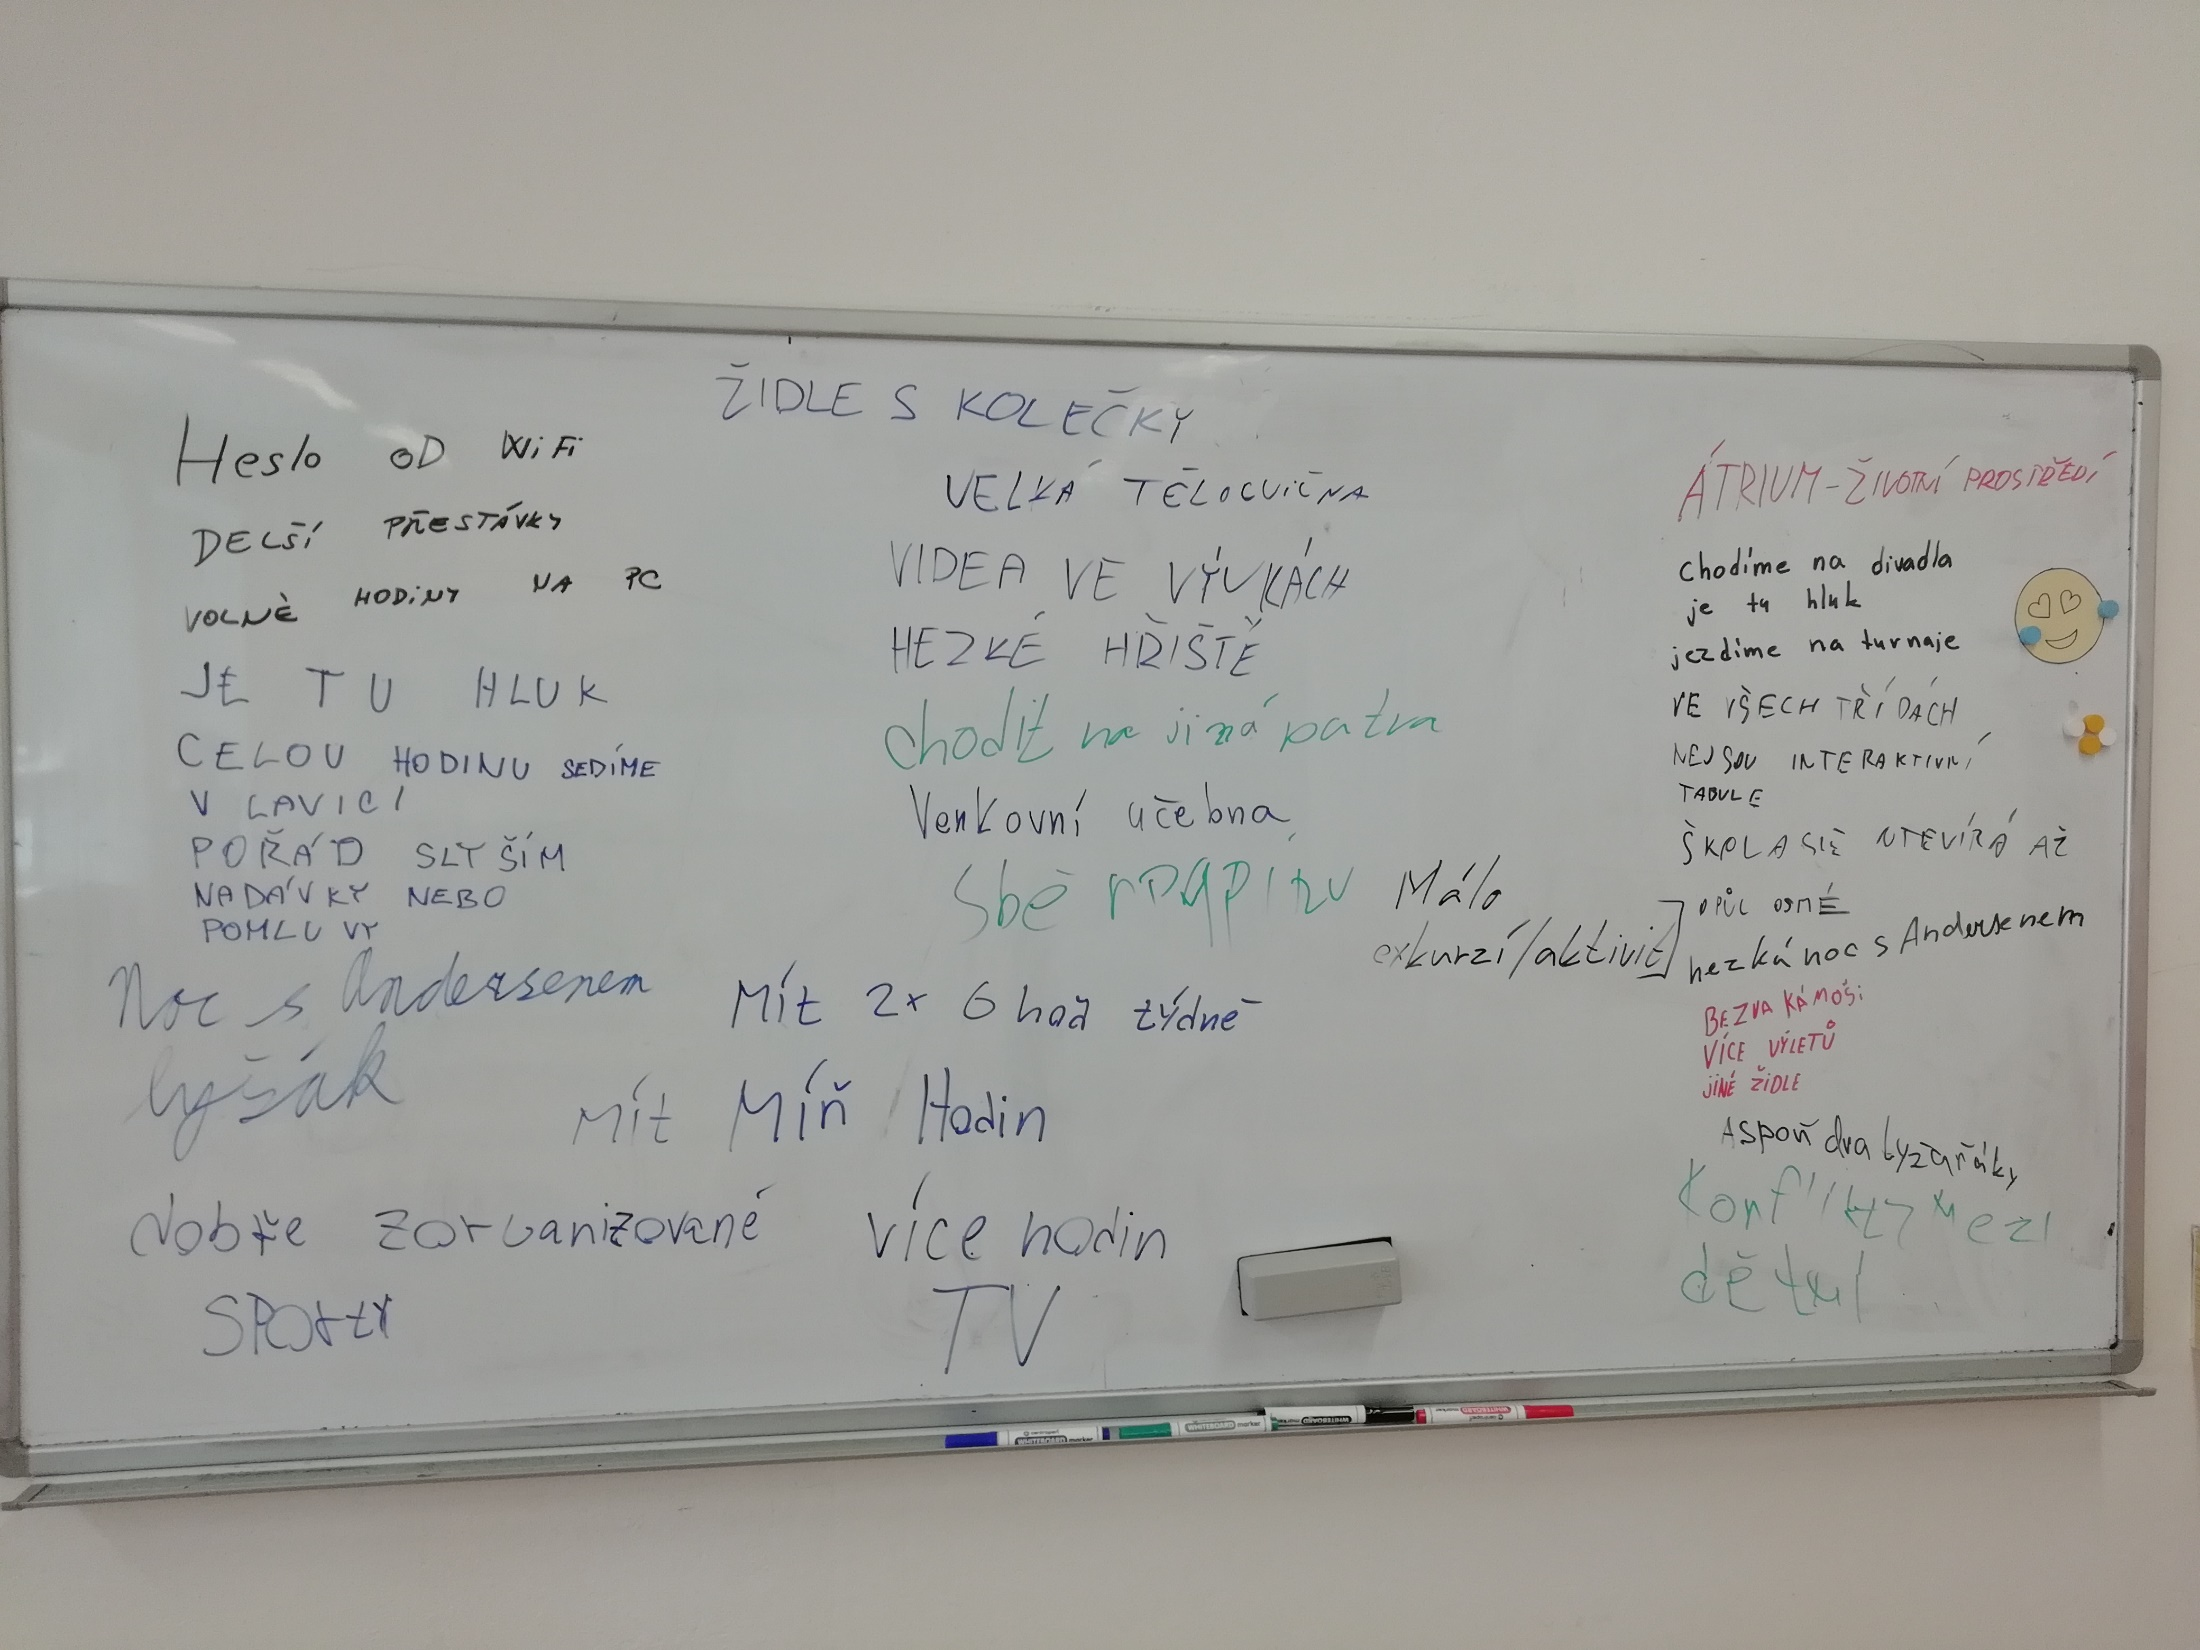 ŽIDLE S KOLEČKY
Heslo OD WiFi
DELŠÍ PŘESTÁVKY
VOLNÉ HODINY NA PC
JE TU HLUK
CELOU HODINU SEDÍME
V LAVICI
POŘÁD SLYŠÍM
NADÁVKY NEBO
POMLUVY
Noc s Andersenem
lyšák
dobře zorganizované
SPOrty
VELKÁ TĚLOCVIČNA
VIDEA VE VÝUKÁCH
HEZKÉ HŘIŠTĚ
chodit na jiná patra
Venkovní učebna
Sběr papíru
Málo
exkurzí/aktivit
Mít 2x 6 hod týdně
Mít Míň Hodin
více hodin
TV
ÁTRIUM-ŽIVOTNÍ PROSTŘEDÍ
chodíme na divadla
je tu hluk
jezdíme na turnaje
VE VŠECH TŘÍDÁCH
NEJSOU INTERAKTIVNÍ
TABULE
ŠKOLA SE OTEVÍRÁ AŽ
OPŮL OSMÉ
hezká noc s Andersenem
BEZVA KÁMOŠI
VÍCE VÝLETŮ
JINÉ ŽIDLE
Aspoň dva lyžařáky
Konflikty mezi
dětmi
WHITEBOARD marker
WHITEBOARD marker
WHITEBOARD
WHITEBOARD marker